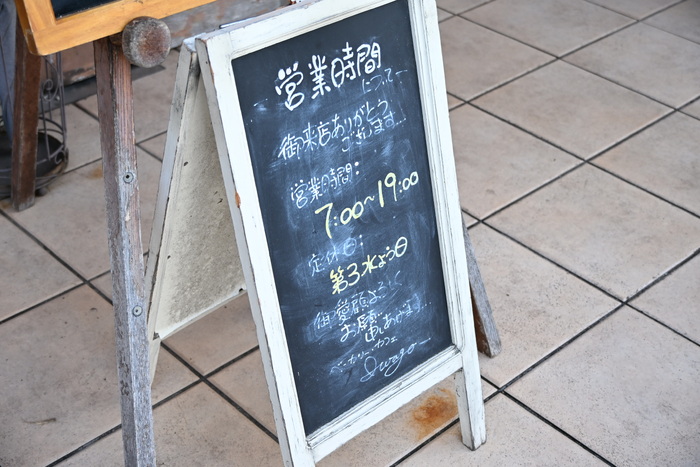 営業時間
について
御来店ありがとう
ございます…
営業時間:
7:00～19:00
定休日:
第3水よう日
御愛顧よろしく
お願い申しあげます…
ベーカリー・カフェ